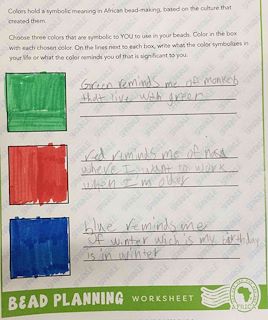 Colors hold a symbolic meaning in African bead-making, based on the culture that
created them.
Choose three colors that are symbolic to YOU to use in your beads. Color in the box
with each chosen color. On the lines next to each box, write what the color symbolizes
in your life or what the color reminds you of that is significant to you.
Green reminds me of
that live with green
red riminds me of nasa
where I want to work
when I'm older
blue reminds me
of winter wich is my birthday
is in winter
BEAD PLANNING WORKSHEET
AFRICA